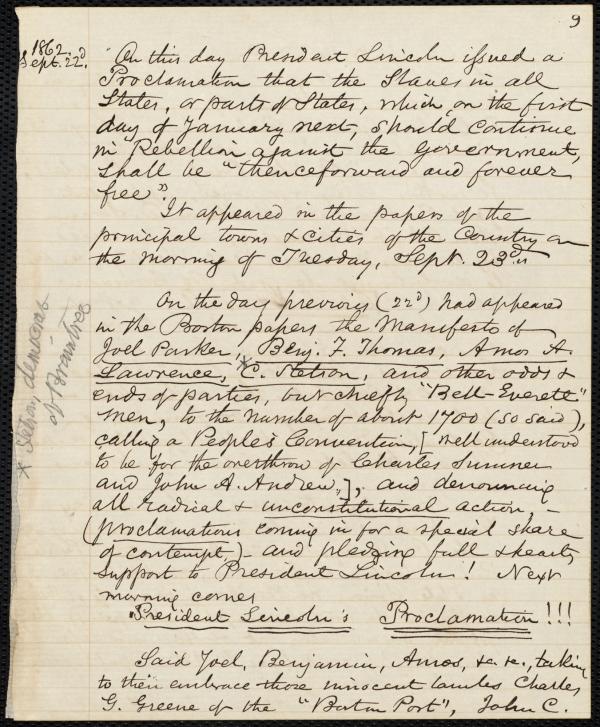 9
1862.
Sept. 22d.
"On this day President Lincoln issued a
Proclamation that the Slaves in all
States, or parts of States, which, on the first
day of January next, should continue
in Rebellion against the Government,
shall be "thenceforward and forever
free".
It appeared in the papers of the
principal towns & cities of the Country on
the morning of Tuesday, Sept. 23d.
On the day previous (22d) had appeared
in the Boston papers the Manifesto of
Joel Parker, Benj. F. Thomas, Amos A.
Lawrence, *C. Stetson, and other odds &
ends of parties, but chiefly "Bell-Everett"
men, to the number of about 1700 (so said),
calling a Peoples Convention, [well understood
to be for the overthrow of Charles Sumner
and John A. Andrew,], and denouncing
all radical & unconstitutional action, -
(proclamations coming in for a special share
of contempt) - and pledging full & hearty
support to President Lincoln! Next
morning comes
President Lincoln's Proclamation!!!
Said Joel, Benjamin, Amos, &c. &c., taking
to their embrace those innocent lambs Charles
G. Greene of the "Boston Post", John C.
* Stetson, democrat
of Braintree